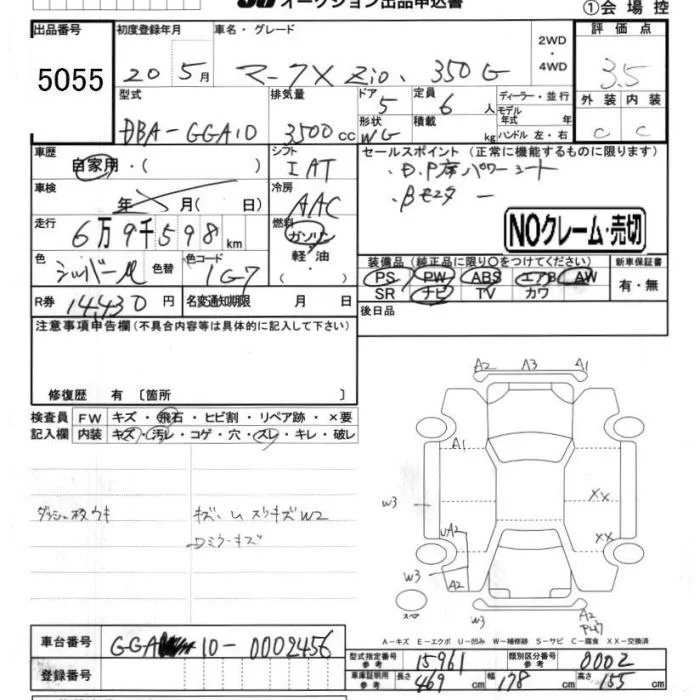 オークション出品申込書
①会場控
出品番号
5055
初度登録年月
20 5月
車名・グレード
マークX Zio. 350G
2WD
・
4WD
評価点
3.5
外装 内装
C C
型式
DBA-GGA10
排気量
3500cc
ドア
5
形状
WG
定員
6人
積載
kg
ディーラー・並行
モデル
年式 年
ハンドル 左・右
車歴
自家用・( )
シフト
IAT
車検
年 月( 日)
冷房
AAC
走行
6万9千598km
燃料
ガソリン
軽油
・
色
シルバーM
色替
色コード
1G7
R券 14,430円
名変通知期限 月 日
セールスポイント (正常に機能するものに限ります)
・D.P席パワーシート
・Bモニター
NOクレーム・売切
装備品(純正品に限り○をつけてください)
PS PW ABS エアB AW
SR ナビ TV カワ
新車保証書
有・無
後日品
注意事項申告欄(不具合内容等は具体的に記入して下さい)
修復歴 有〔箇所 〕
検査員 FW キズ・飛石・ヒビ割・リペア跡・×要
記入欄 内装 キズ・汚レ・コゲ・穴・スレ・キレ・破レ
A2 A3 A1
A1
W3
XX
UA2
XX
W3
A2
スペア
W3
A2
A-キズ E-エクボ U-凹み W-補修跡 S-サビ C-腐食 XX-交換済
車台番号 GGA 10-0002456
登録番号
型式指定番号
参考
15961
類別区分番号
参考
0002
車庫証明用
参考
長さ 469cm 幅 178cm 高さ 155cm